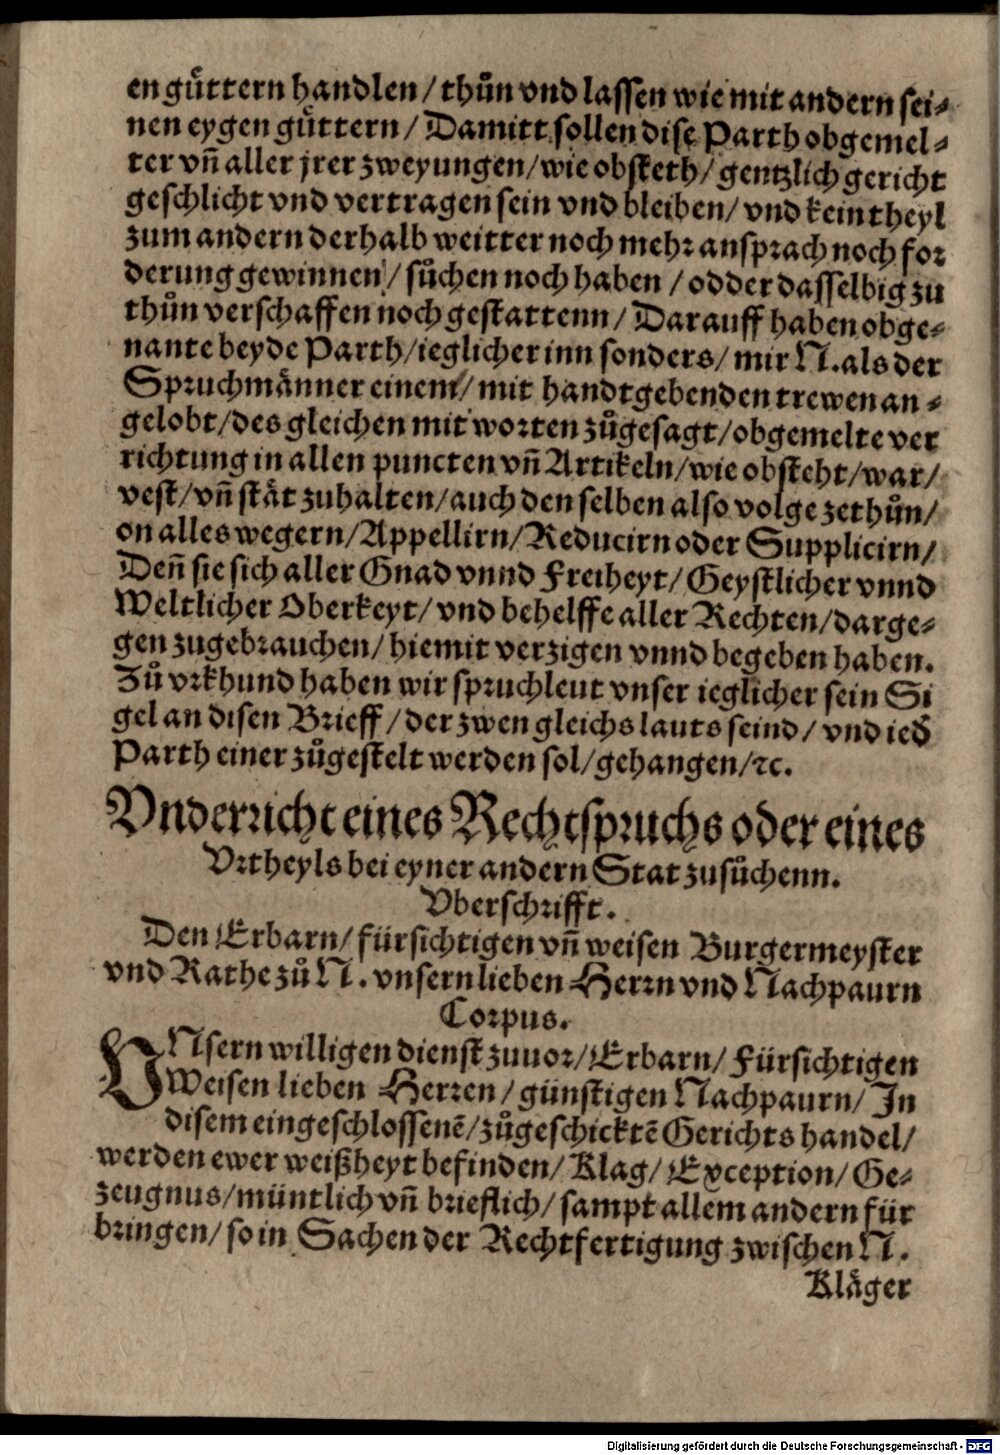 en guͤttern handlen / thuͦn vnd lassen wie mit andern sei⸗
nen eygen guͤttern / Damitt sollen dise Parth obgemel⸗
ter vñ aller jrer zweyungen / wie obsteth / gentzlich gericht
geschlicht vnd vertragen sein vnd bleiben / vnd kein theyl
zum andern derhalb weitter noch mehr ansprach noch for
derung gewinnen / suͦchen noch haben / odder dasselbig zu
thuͦn verschaffen noch gestattenn / Darauff haben obge⸗
nante beyde Parth / ieglicher inn sonders / mir N. als der
Spruchmaͤnner einem / mit handtgebenden trewen an⸗
gelobt / des gleichen mit worten zuͦgesagt / obgemelte ver
richtung in allen puncten vñ Artikeln / wie obsteht / war /
vest / vñ staͤt zuhalten / auch den selben also volge zethuͦn /
on alles wegern / Appellirn / Reducirn oder Supplicirn /
Deñ sie sich aller Gnad vnnd Freiheyt / Geystlicher vnnd
Weltlicher Oberkeyt / vnd behelffe aller Rechten / darge⸗
gen zugebrauchen / hiemit verzigen vnnd begeben haben.
Zuͦ vrkhund haben wir spruchleut vnser ieglicher sein Si
gel an disen Brieff / der zwen gleichs lauts seind / vnd ied̃
Parth einer zuͦgestelt werden sol / gehangen / ꝛc.
Vnderricht eines Rechtspruchs oder eines
Vrtheyls bei eyner andern Stat zusuͦchenn.
Vberschrifft.
Den Erbarn / fürsichtigen vñ weisen Burgermeyster
vnd Rathe zuͦ N. vnsern lieben Herrn vnd Nachpaurn
Corpus.
VNsern willigen dienst zuuor / Erbarn / Fürsichtigen
Weisen lieben Herren / günstigen Nachpaurn / In
disem eingeschlossenẽ / zuͦgeschicktẽ Gerichts handel /
werden ewer weißheyt befinden / Klag / Exception / Ge⸗
zeugnus / müntlich vñ brieflich / sampt allem andern für
bringen / so in Sachen der Rechtfertigung zwischen N.
Klaͤger
Digitalisierung gefördert durch die Deutsche Forschungsgemeinschaft - DFG